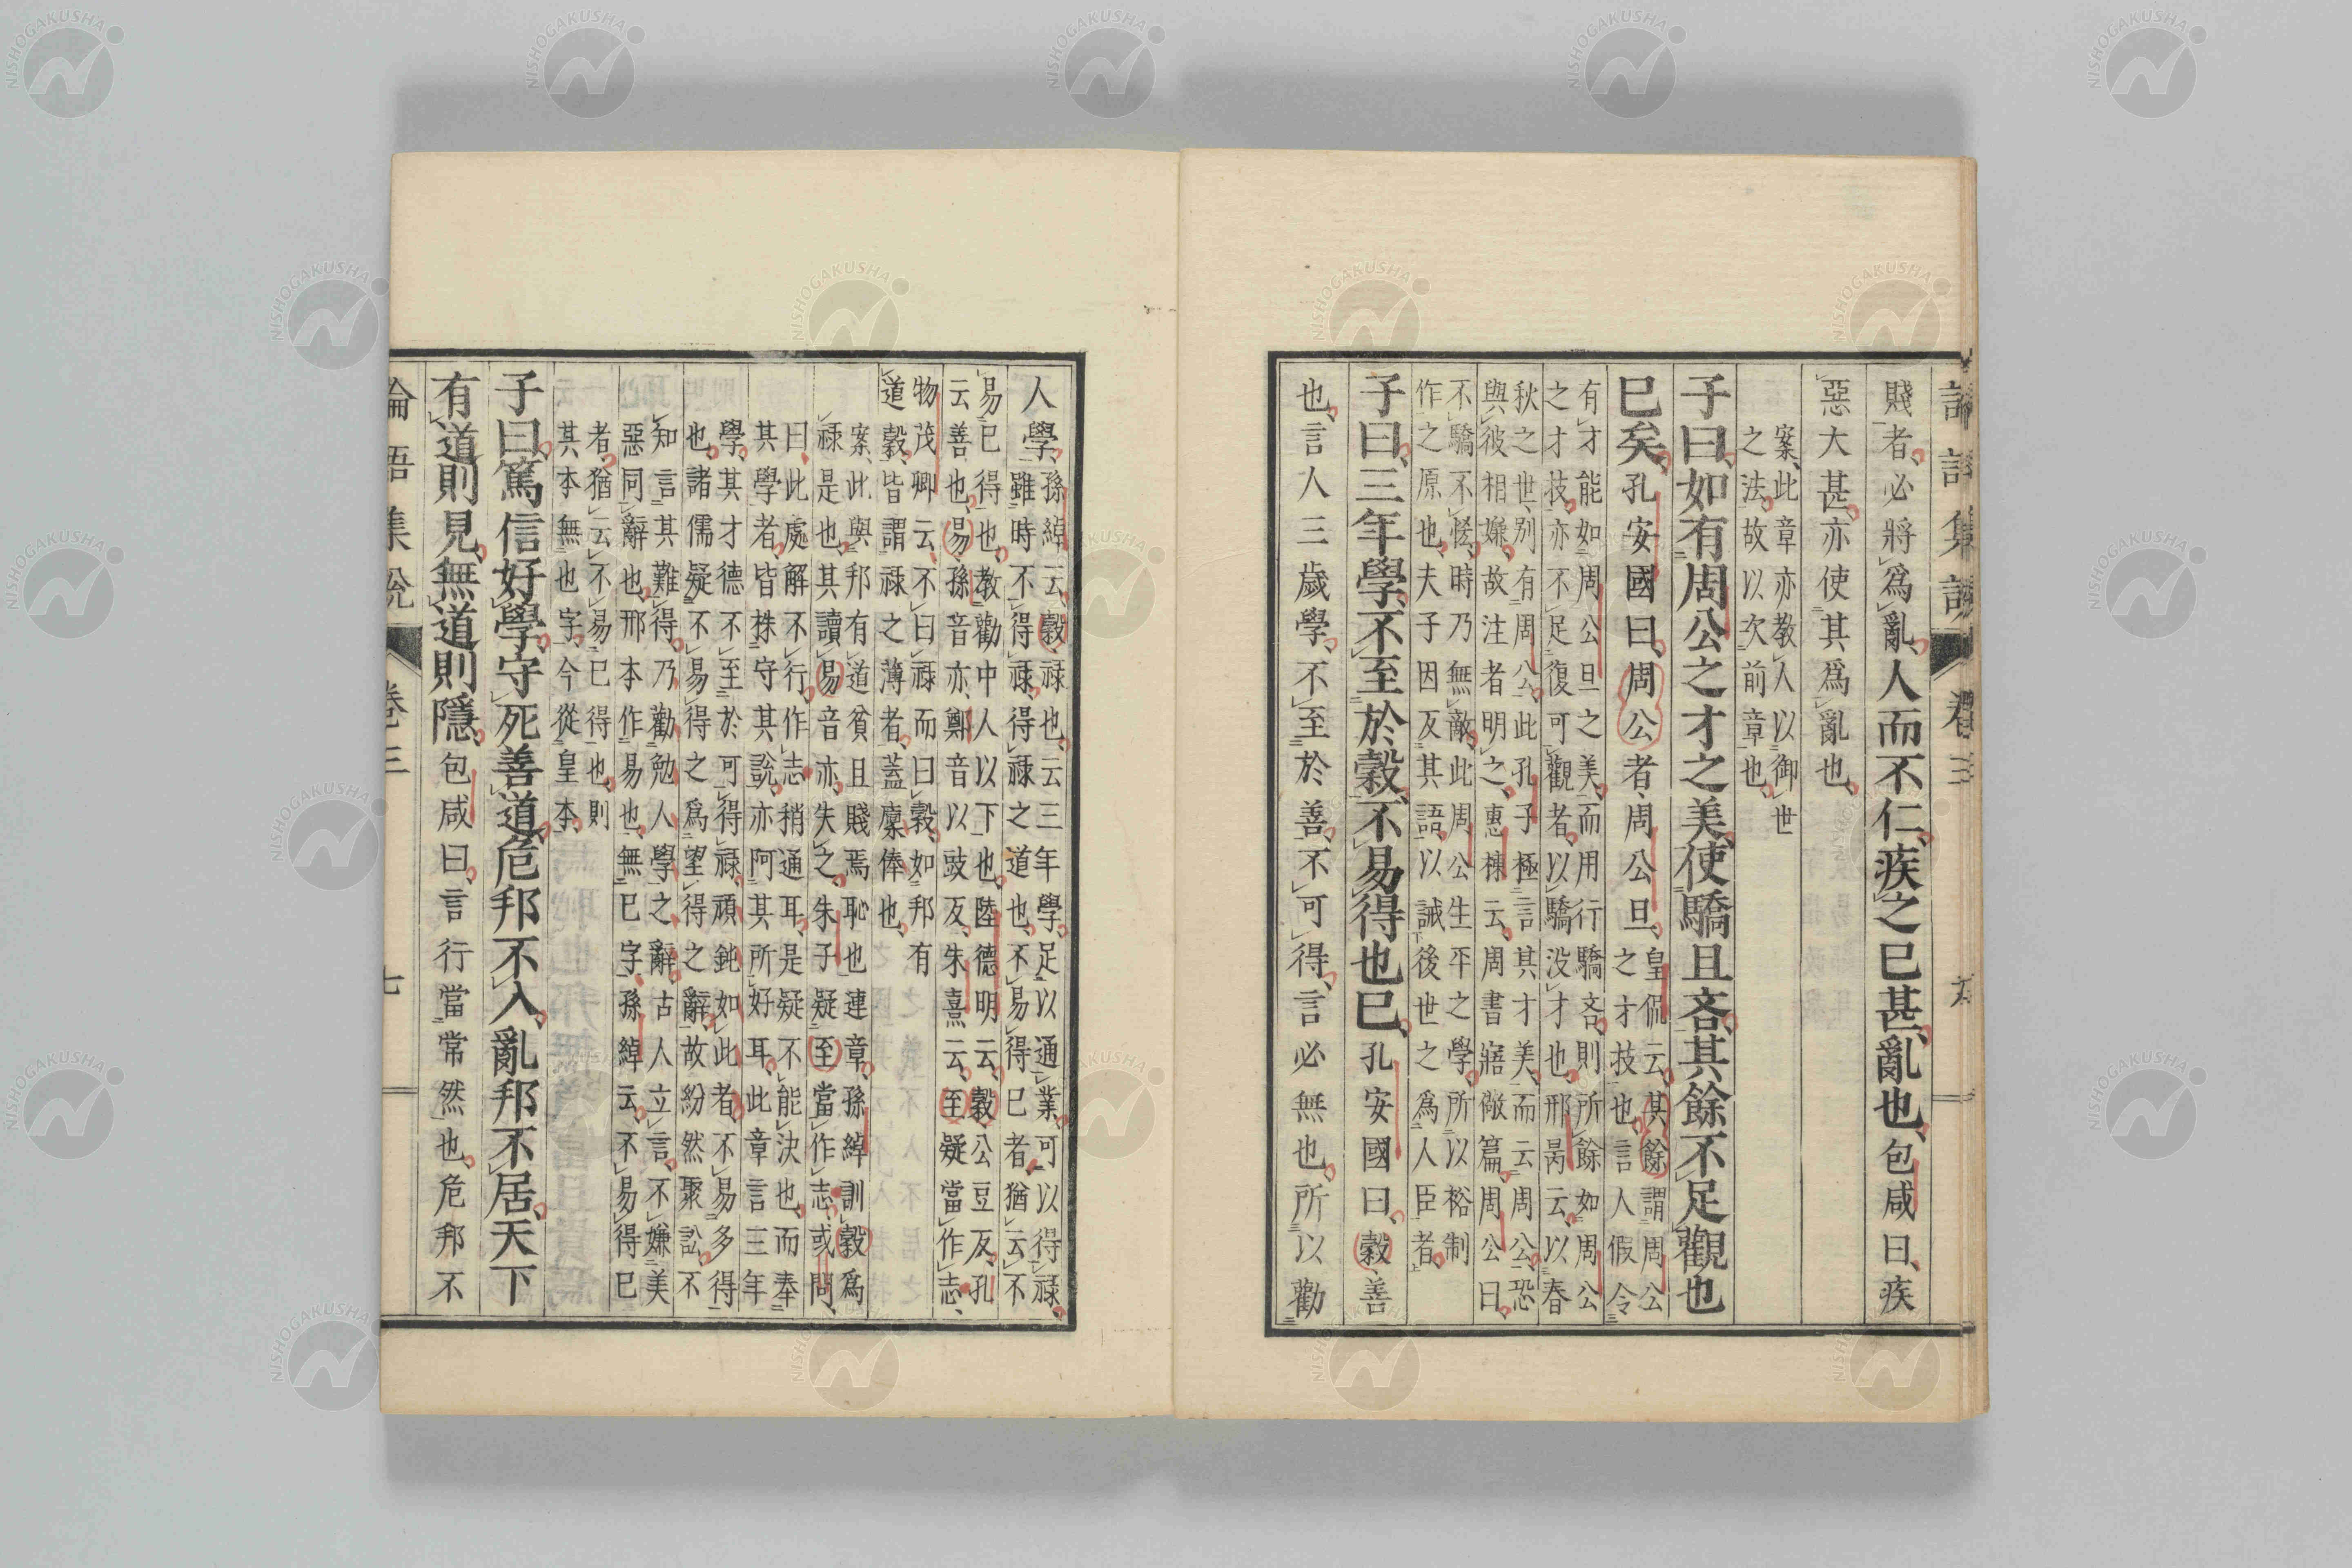 論語集說　卷三　六
賤者、必將爲亂、人而不仁、疾之已甚、亂也、包咸曰、疾
惡大甚、亦使其爲亂也、
案、此章亦教人以御世
之法、故以次前章也、
子曰、如有周公之才之美、使驕且吝、其餘不足觀也
已矣、孔安國曰、周公者周公旦、
皇侃云、其餘謂周公
之才技也、言人假令
有才能如周公旦之美、而用行驕吝、則所餘如周公
之才技、亦不足復可觀者、以驕没才也、邢昺云、以春
秋之世、別有周公、此孔子極言其才美、而云周公、恐
與彼相嫌、故注者明之、惠棟云、周書寤儆篇、周公曰、
不驕不恡、時乃無敵、此周公生平之學、所以裕制
作之原也、夫子因反其語、以誡後世之爲人臣者、
子曰、三年學、不至於穀、不易得也已、孔安國曰、穀善
也、言人三歲學、不至於善、不可得、言必無也、所以勸
人學、
孫綽云、穀、祿也、云三年學、足以通業、可以得祿、
雖時不得祿、得祿之道也、不易得已者、猶云不
易已得也、教勸中人以下也、陸德明云、穀、公豆反、孔
云善也、易、孫音亦、鄭音以豉反、朱熹云、至疑當作志、
物茂卿云、不曰祿而曰穀、如邦有
道穀、皆謂祿之薄者、蓋廩俸也、
案、此與邦有道貧且賤焉恥也連章、孫綽訓穀爲
祿是也、其讀易音亦、失之、朱子疑至當作志、或問、
曰、此處解不行、作志稍通耳、是疑不能決也、而奉
其學者、皆株守其說、亦阿其所好耳、此章言三年
學、其才德不至於可得祿、頑鈍如此者、不易多得
也、諸儒疑不易得之爲望得之辭、故紛然聚訟、不
知言其難得、乃勸勉人學之辭、古人立言、不嫌美
惡同辭也、邢本作易也、無已字、孫綽云、不易得已
者、猶云不易已得也、則
其本無也字、今從皇本、
子曰、篤信好學、守死善道、危邦不入、亂邦不居、天下
有道則見、無道則隱、包咸曰、言行當常然也、危邦不
論語集說　卷三　七